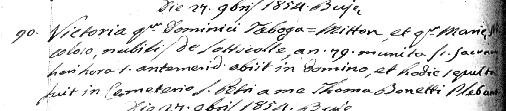 Die 27. 9bris 1854. Buje
90. Victoria qm Dominici Taboga = Mitton, et qm Mariæ
nubilis de an. 79. munita ss. Sacram.
hora 1. antemerid. obiit in Domino, et hodie sepulta
fuit in Cemeterio s. Petri a me Thoma Bonetti Plebano
Die 27. 9bris 1854.